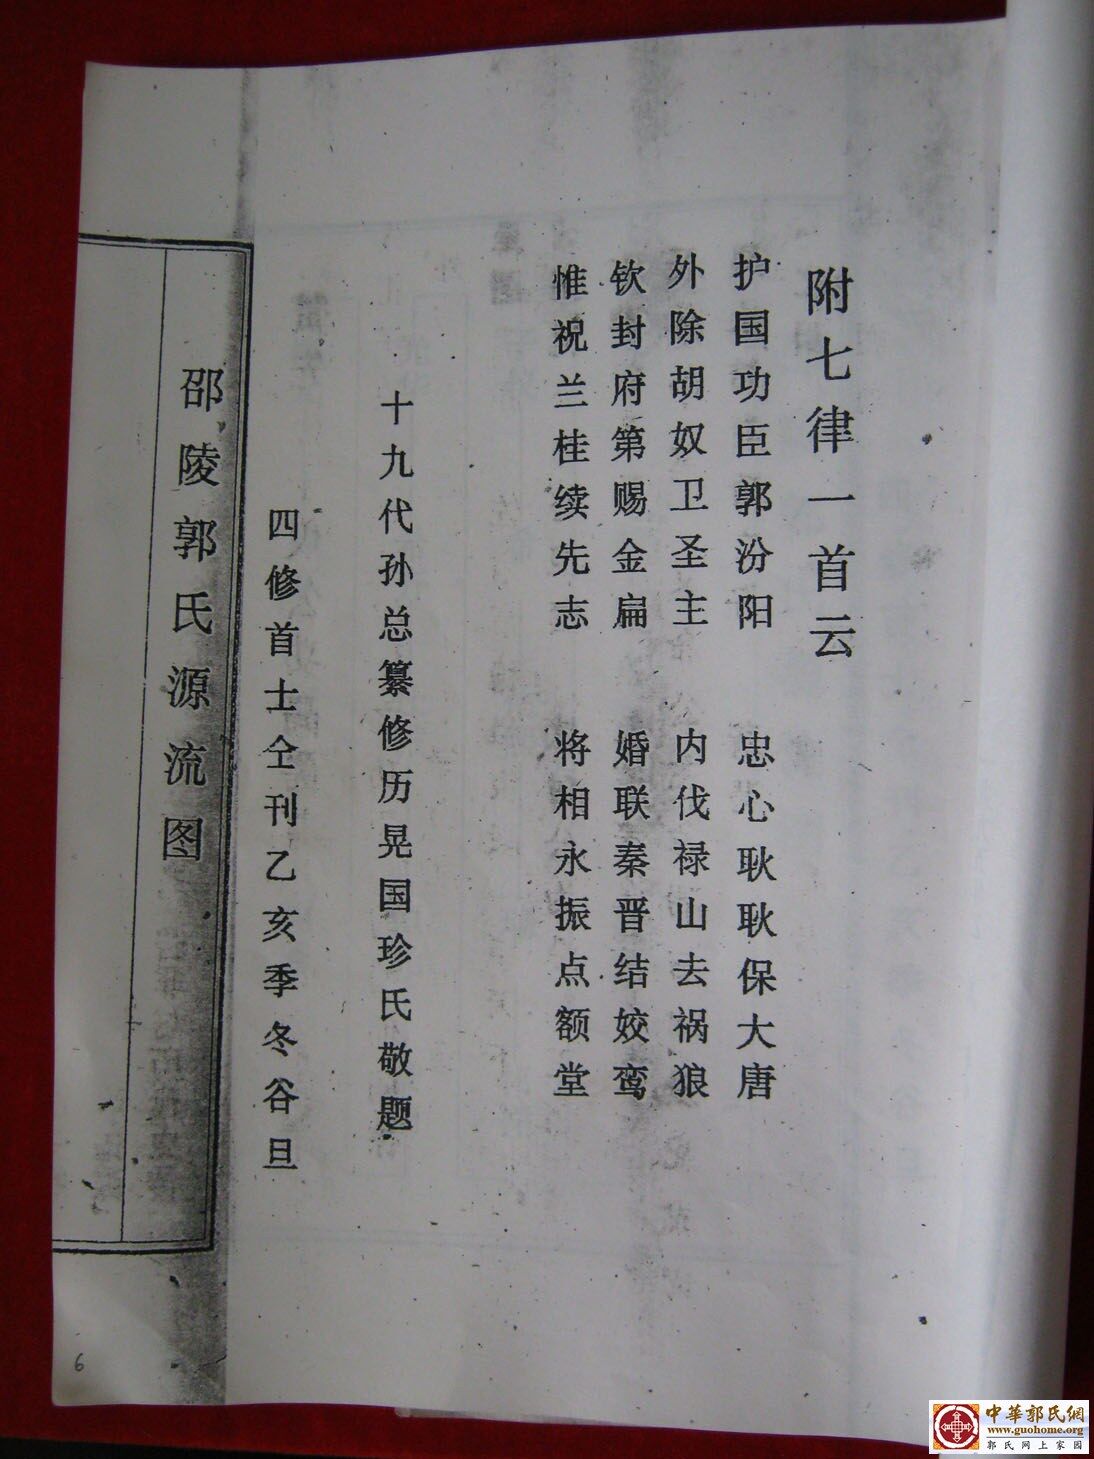 附七律一首云
护国功臣郭汾阳　忠心耿耿保大唐
外除胡奴卫圣主　内伐禄山去祸狼
钦封府第赐金扁　婚联秦晋结姣鸾
惟祝兰桂续先志　将相永振点额堂
十九代孙总纂修历晃国珍氏敬题
四修首士仝刊乙亥季冬谷旦
邵陵郭氏源流图
6
中華郭氏網
www.guohome.org
郭氏网上家园